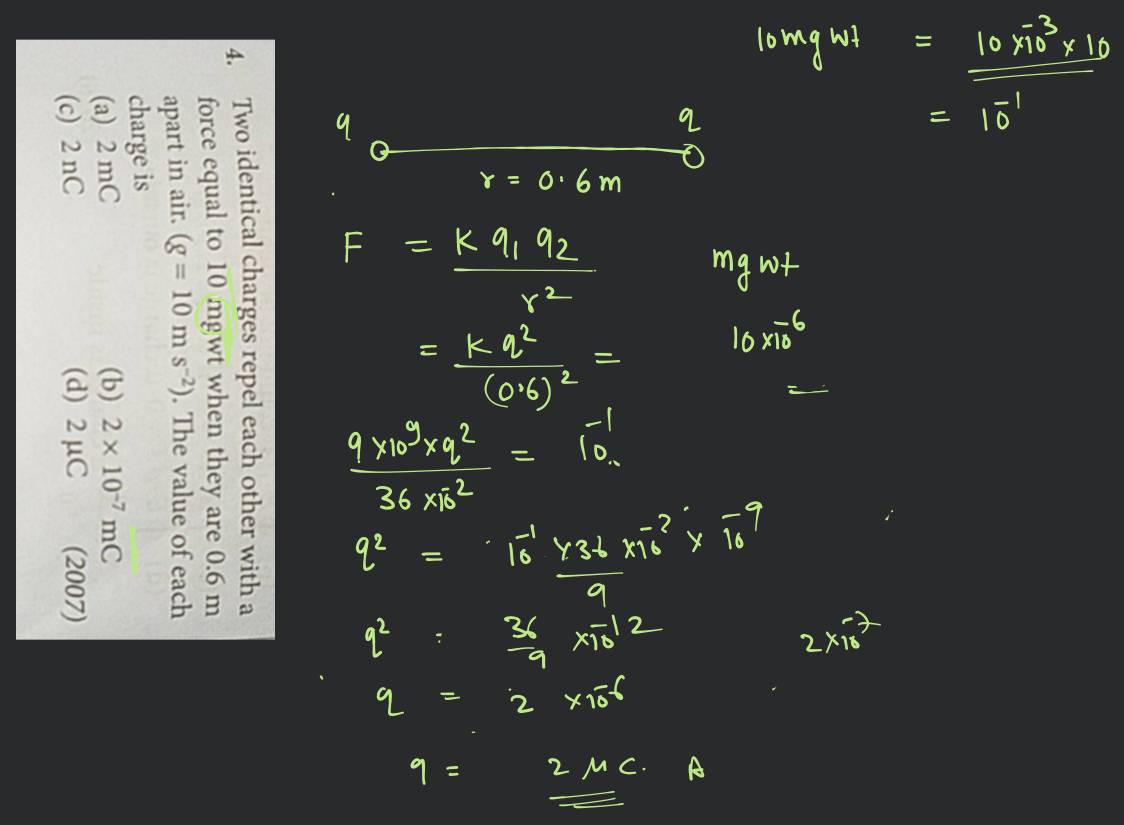 4. Two identical charges repel each other with a
force equal to 10 mgwt when they are 0.6 m
apart in air. (g = 10 m s⁻²). The value of each
charge is
(a) 2 mC (b) 2 × 10⁻⁷ mC
(c) 2 nC (d) 2 μC (2007)
10mg wt = 10 x10⁻³ x 10
= 10⁻¹
q q
r = 0.6m
F = K q₁ q₂ / r²
= K q² / (0.6)² =
mg wt
10 x10⁻⁶
=
9 x10⁹ x q² / 36 x10⁻² = 10⁻¹
q² = 10⁻¹ x 36 x10⁻² x 10⁻⁹ / 9
q² : 36/9 x10⁻¹²
2 x10⁻⁷
q = 2 x10⁻⁶
q = 2 μC. A